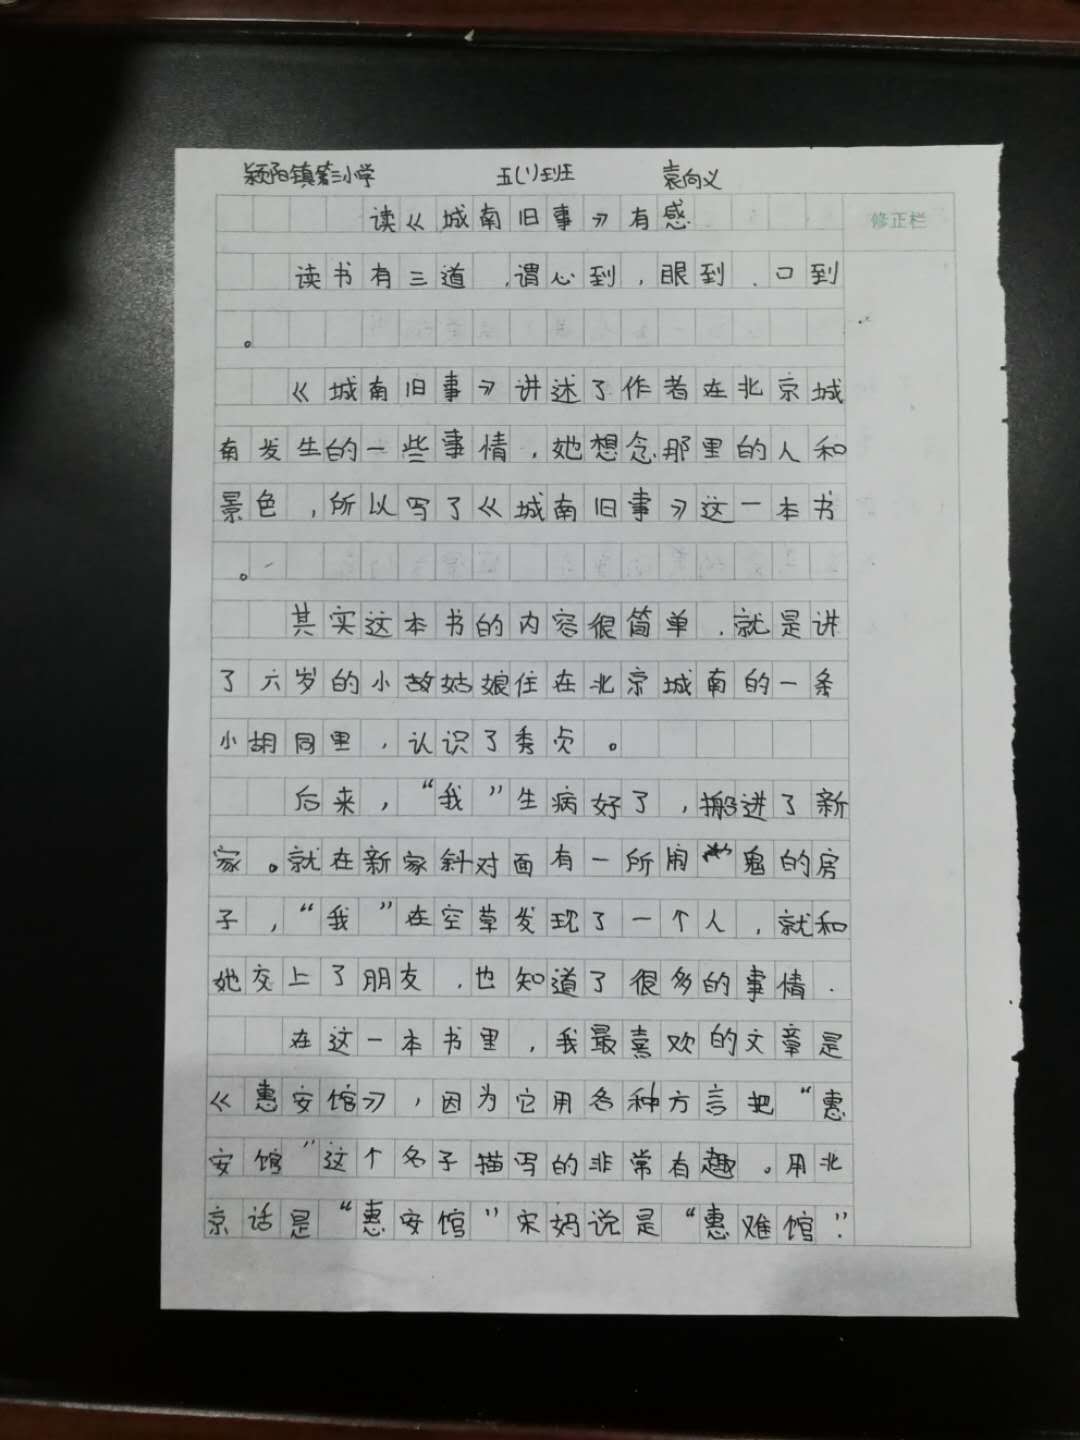 颍阳镇第三小学 五(1)班 袁向义
读《城南旧事》有感
修正栏
读书有三道,谓心到,眼到、口到
。
《城南旧事》讲述了作者在北京城
南发生的一些事情,她想念那里的人和
景色,所以写了《城南旧事》这一本书
。
其实这本书的内容很简单,就是讲
了六岁的小故姑娘住在北京城南的一条
小胡同里,认识了秀贞。
后来,“我”生病好了,搬进了新
家。就在新家斜对面有一所闹鬼的房
子,“我”在空草发现了一个人,就和
她交上了朋友,也知道了很多的事情.
在这一本书里,我最喜欢的文章是
《惠安馆》,因为它用各种方言把“惠
安馆”这个名子猫写的非常有趣。用北
京话是“惠安馆”宋妈说是“惠难馆”.